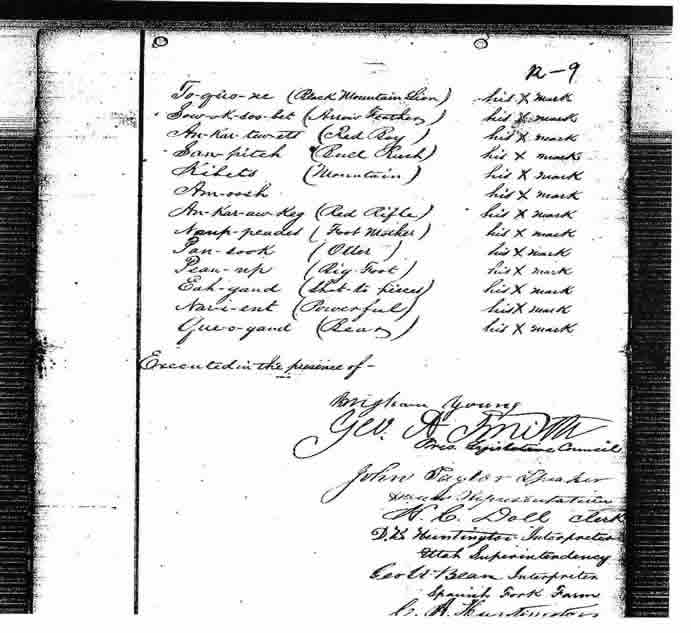 12-9
To-quo-ne (Black Mountain Lion) his X mark
Sow-ok-soo-bet (Arrow Feather) his X mark
An-kar-tew-ets (Red Boy) his X mark
San-pitch (Bull Rush) his X mark
Kibets (Mountain) his X mark
Am-oosh his X mark
An-kar-aw-keg (Red Rifle) his X mark
Naup-peades (Foot Maker) his X mark
Pan-sook (Otter) his X mark
Pean-up (Big Foot) his X mark
Eah-gand (Shot to pieces) his X mark
Nar-i-ent (Powerful) his X mark
Que-o-gand (Bear) his X mark
Executed in the presence of -
Brigham Young
Geo. A Smith
Pres. Legislative Council
John Taylor Speaker
House Representatives
Clerk
D.B. Huntington Interpreter
Utah Superintendency
Geo W Bean Interpriter
Spanish Fork Farm
C. A. Huntington